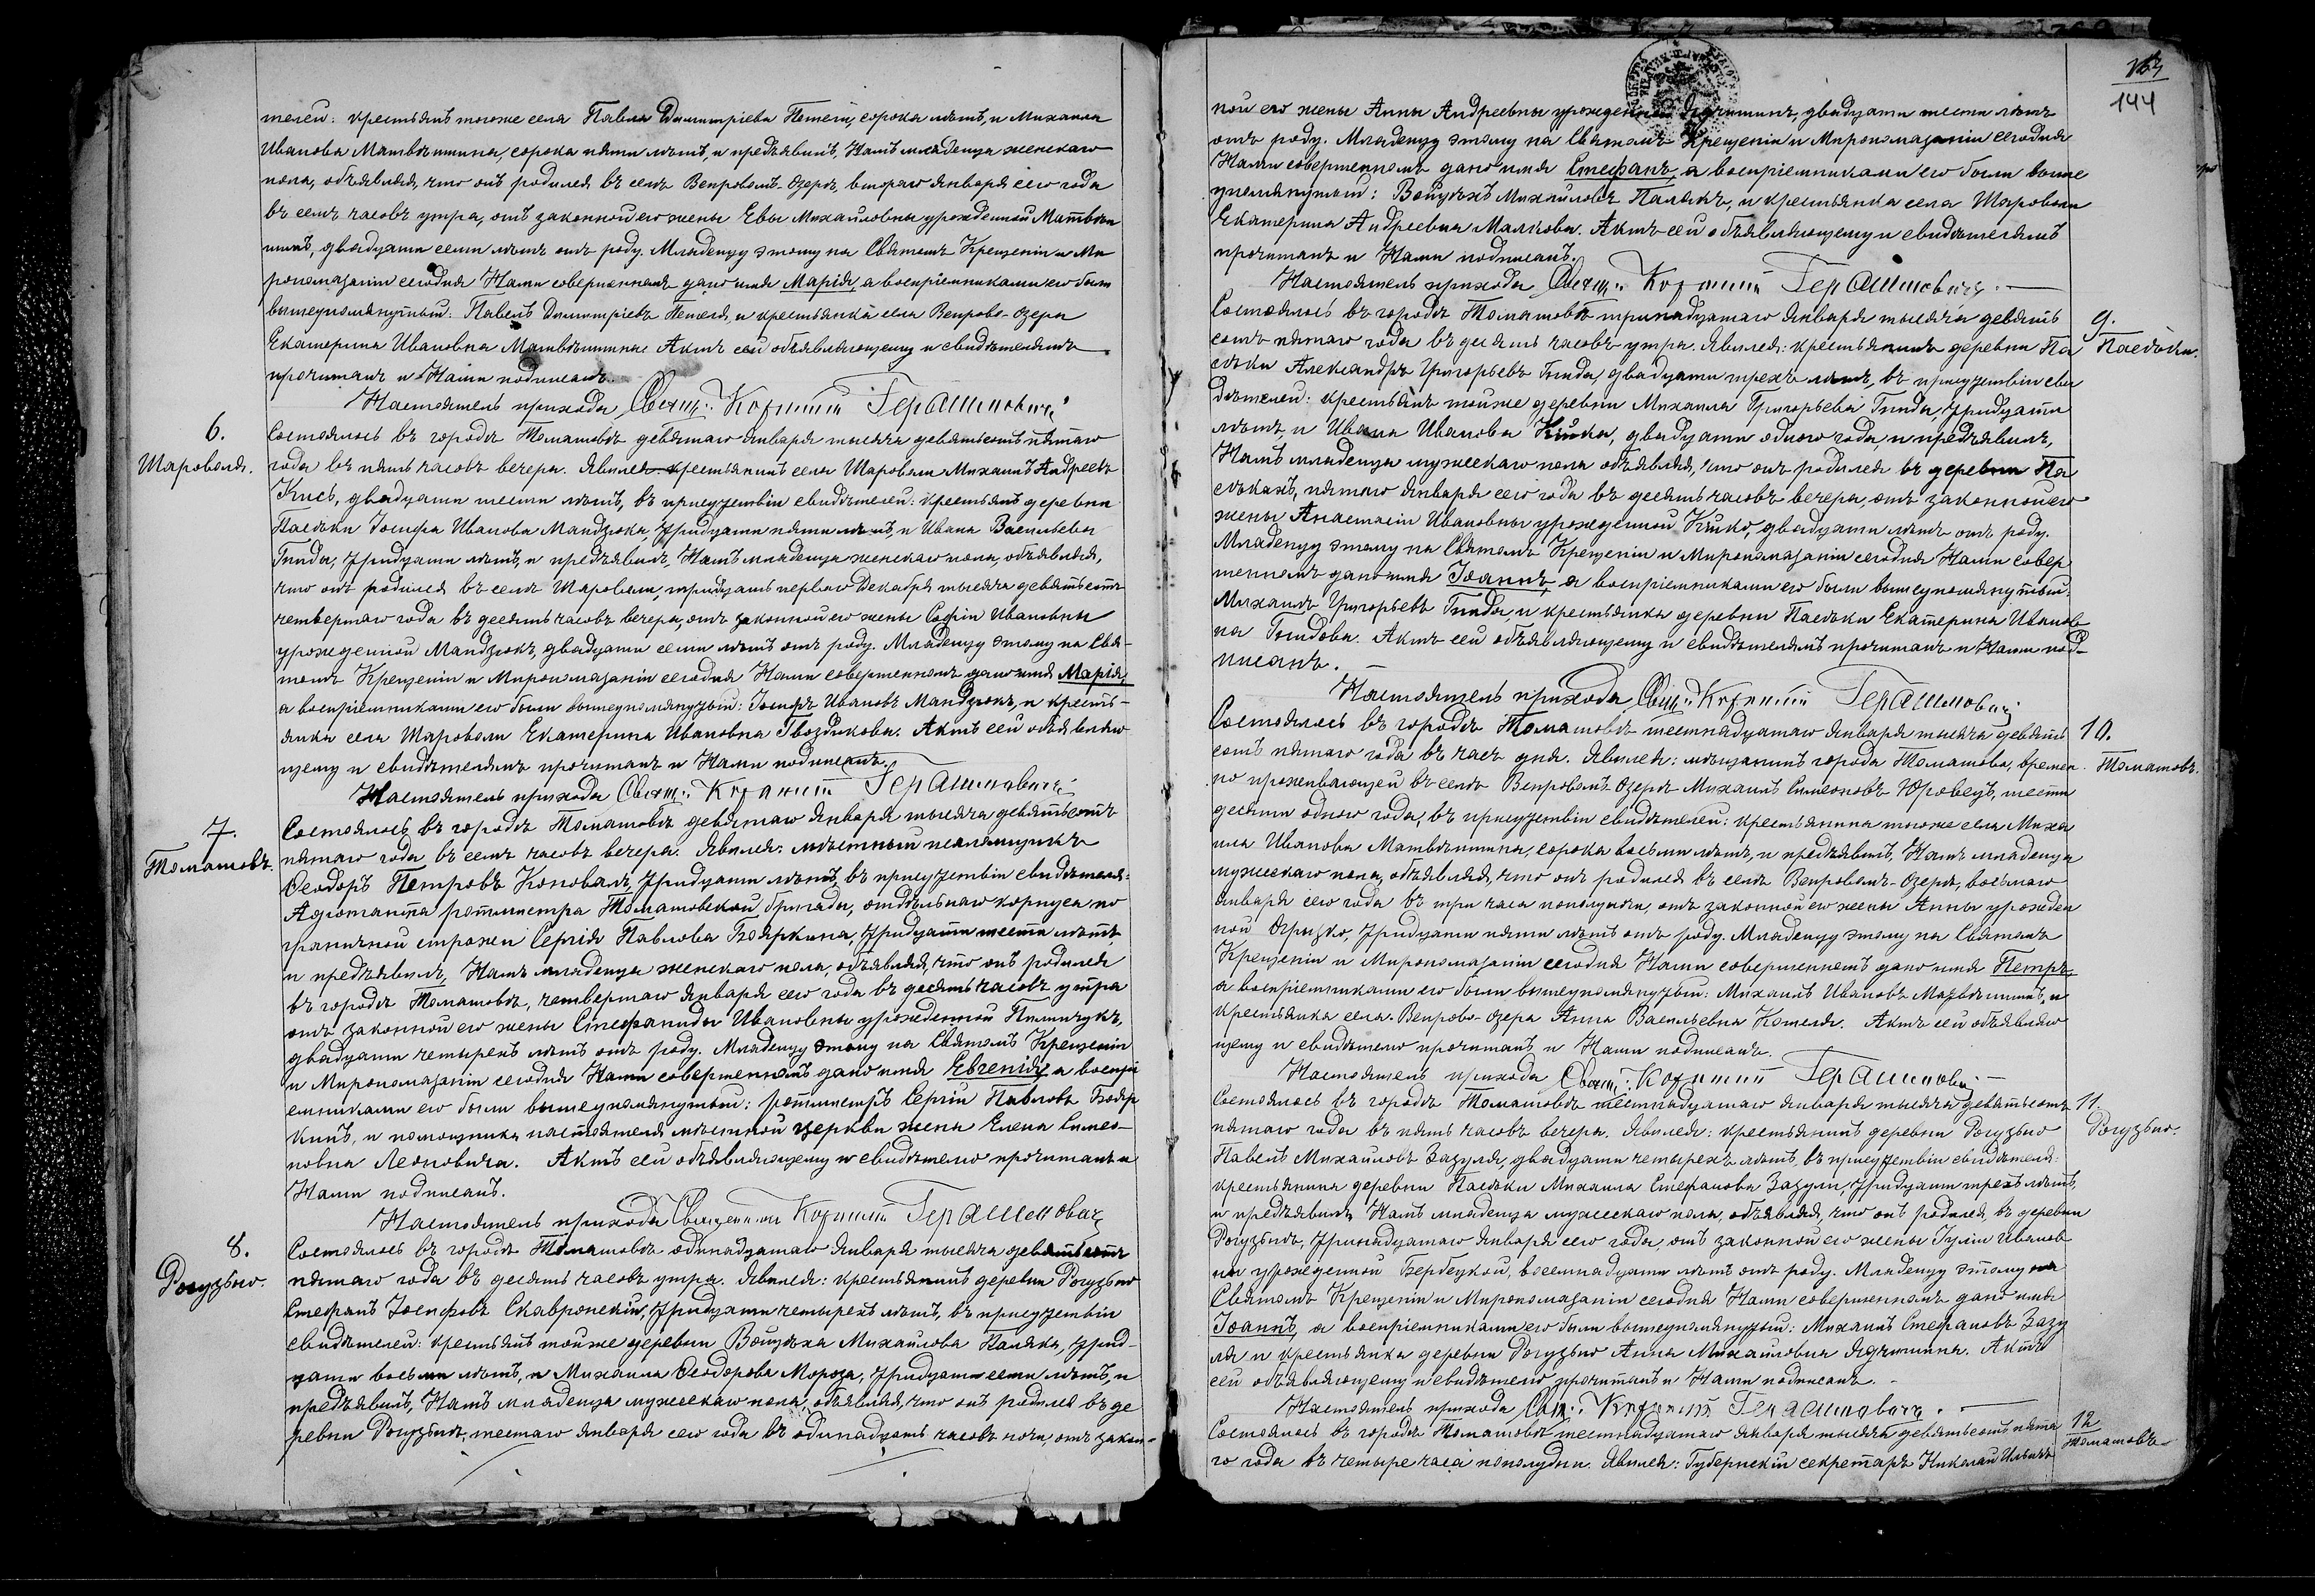 телей: крестьянъ тогоже села Павла Димитріева Пепеги, сорока лѣтъ, и Михаила
Иванова Матвѣишина, сорока пяти лѣтъ, и предъявилъ Намъ младенца женскаго
пола, объявляя, что онъ родился въ селѣ Вепровомъ-Озерѣ, втораго Января сего года
въ семь часовъ утра, отъ законной его жены Евы Михайловны урожденной Матвѣи
шинъ, двадцати семи лѣтъ отъ роду. Младенцу этому на Святомъ Крещеніи и Ми
ропомазаніи сегодня Нами совершенномъ дано имя Марія, а воспріемниками его были
вышеупомянутый: Павелъ Димитріевъ и крестьянка села Вепрово-Озера
Екатерина Ивановна Матвѣишина. Актъ сей объявляющему и свидѣтелямъ
прочитанъ и Нами подписанъ.
Настоятель прихода Свящ: Герашимовичъ
6.
Шароволя.
Состоялось въ городѣ Томашовѣ девятаго Января тысяча девятьсотъ пятаго
года въ пять часовъ вечера. Явился: крестьянинъ села Шароволи Михаилъ Андреевъ
Кись, двадцати шести лѣтъ, въ присутствіи свидѣтелей: крестьянъ деревни
Пасѣки Іосифа Иванова Мандзюка, тридцати пяти лѣтъ, и Ивана Васильева
Гинды, тридцати лѣтъ, и предъявилъ Намъ младенца женскаго пола, объявляя,
что онъ родился въ селѣ Шароволи, тридцать перваго Декабря тысяча девятьсотъ
четвертаго года въ десять часовъ вечера, отъ законной его жены Софіи Ивановны
урожденной Мандзюкъ, двадцати семи лѣтъ отъ роду. Младенцу этому на Свя-
томъ Крещеніи и Миропомазаніи сегодня Нами совершенномъ дано имя Марія,
а воспріемниками его были вышеупомянутый: Іосифъ Ивановъ Мандзюкъ, и кресть-
янка села Шароволи Екатерина Ивановна Гвоздикова. Актъ сей объявляю
щему и свидѣтелямъ прочитанъ и Нами подписанъ.
Настоятель прихода Свящ: Герашимовичъ
7.
Томашовъ.
Состоялось въ городѣ Томашовѣ девятаго Января тысяча девятьсотъ
пятаго года въ семь часовъ вечера. Явился: мѣстный псаломщикъ
Ѳеодоръ Петровъ Коновалъ, тридцати лѣтъ, въ присутствіи свидѣтеля:
Адютанта ротмистра Томашовской бригады, отдѣльнаго корпуса по
граничной стражи Сергія Павлова Бояркина, тридцати шести лѣтъ,
и предъявилъ Намъ младенца женскаго пола, объявляя, что онъ родился
въ городѣ Томашовѣ, четвертаго Января сего года въ десять часовъ утра
отъ законной его жены Стефаниды Ивановны урожденной Пилипчукъ,
двадцати четырехъ лѣтъ отъ роду. Младенцу этому на Святомъ Крещеніи
и Миропомазаніи сегодня Нами совершенномъ дано имя Евгенія, а воспрі
емниками его были вышеупомянутый: ротмистръ Сергій Павловъ Бояр
кинъ, и помощника настоятеля мѣстной церкви жена Елена Симео-
новна Леоновича. Актъ сей объявляющему и свидѣтелю прочитанъ и
Нами подписанъ.
Настоятель прихода Священникъ Герашимовичъ
8.
Рогузьно.
Состоялось въ городѣ Томашовѣ одинадцатаго Января тысяча девятьсотъ
пятаго года въ десять часовъ утра. Явился: крестьянинъ деревни Рогузьно
Стефанъ Іосифовъ Скавронскій, тридцати четырехъ лѣтъ, въ присутствіи
свидѣтелей: крестьянъ тойже деревни Войцѣха Михайлова Паляка, трид-
цати восьми лѣтъ, и Михаила Ѳеодорова Мороза, тридцати семи лѣтъ, и
предъявилъ Намъ младенца мужескаго пола, объявляя, что онъ родился въ де
ревни Рогузьнѣ, шестаго Января сего года въ одинадцать часовъ ночи, отъ закон-
144
ной его жены Анны Андреевны урожденной двадцати шести лѣтъ
отъ роду. Младенцу этому на Святомъ Крещеніи и Миропомазаніи сегодня
Нами совершенномъ дано имя Стефанъ, а воспріемниками его были выше
упомянутый: Войцѣхъ Михайловъ Палякъ, и крестьянка села Шароволи
Екатерина Андреевна Малкова. Актъ сей объявляющему и свидѣтелямъ
прочитанъ и Нами подписанъ.
Настоятель прихода Свящ: Герашимовичъ
9.
Пасѣки.
Состоялось въ городѣ Томашовѣ тринадцатаго Января тысяча девять
сотъ пятаго года въ десять часовъ утра. Явился: крестьянинъ деревни Па
сѣки Александръ Григорьевъ Гинда, двадцати трехъ лѣтъ, въ присутствіи сви
дѣтелей: крестьянъ тойже деревни Михаила Григорьева Гинды, тридцати
лѣтъ, и Ивана Иванова Кицка, двадцати одного года, и предъявилъ,
Намъ младенца мужескаго пола объявляя, что онъ родился въ деревни Па
сѣкахъ, пятаго Января сего года въ десять часовъ вечера, отъ законной его
жены Анастасіи Ивановны урожденной Кицко, двадцати лѣтъ отъ роду.
Младенцу этому на Святомъ Крещеніи и Миропомазаніи сегодня Нами совер
шенномъ дано имя Іоаннъ, а воспріемниками его были вышеупомянутый:
Михаилъ Григорьевъ Гинда, и крестьянка деревни Пасѣки Екатерина Иванов
на Гиндова. Актъ сей объявляющему и свидѣтелямъ прочитанъ и Нами под-
писанъ.
Настоятель прихода Свящ: Герашимовичъ
10.
Томашовъ.
Состоялось въ городѣ Томашовѣ шестнадцатаго Января тысяча девять
сотъ пятаго года въ часъ дня. Явился: мѣщанинъ города Томашова, времен
но проживающей въ селѣ Вепровомъ Озерѣ Михаилъ Симеоновъ Юровецъ, шести
десяти одного года, въ присутствіи свидѣтелей: крестьянина тогоже села Миха
ила Иванова Матвѣишина, сорока восьми лѣтъ, и предъявилъ Намъ младенца
мужескаго пола, объявляя, что онъ родился въ селѣ Вепровомъ-Озерѣ, восьмаго
Января сего года въ три часа пополудни, отъ законной его жены Анны урожден
ной Огрызко, тридцати пяти лѣтъ отъ роду. Младенцу этому на Святомъ
Крещеніи и Миропомазаніи сегодня Нами совершенномъ дано имя Петръ,
а воспріемниками его были вышеупомянутый: Михаилъ Ивановъ Матвѣишинъ, и
крестьянка села Вепрово-Озера Анна Васильевна Кометя. Актъ сей объявляю
щему и свидѣтелю прочитанъ и Нами подписанъ.
Настоятель прихода Свящ: Герашимовичъ
11.
Рогузьно.
Состоялось въ городѣ Томашовѣ шестнадцатаго Января тысяча девятьсотъ
пятаго года въ пять часовъ вечера. Явился: крестьянинъ деревни Рогузьно
Павелъ Михайловъ Зазуля, двадцати четырехъ лѣтъ, въ присутствіи свидѣтеля:
крестьянина деревни Пасѣки Михаила Стефанова Зазули, тридцати трехъ лѣтъ,
и предъявилъ Намъ младенца мужескаго пола, объявляя, что онъ родился въ деревни
Рогузьнѣ, тринадцатаго Января сего года, отъ законной его жены Іуліи Иванов
ны урожденной Бербецкой, восемнадцати лѣтъ отъ роду. Младенцу этому на
Святомъ Крещеніи и Миропомазаніи сегодня Нами совершенномъ дано имя
Іоаннъ, а воспріемниками его были вышеупомянутый: Михаилъ Стефановъ Зазу
ля и крестьянка деревни Рогузьно Анна Михайловна Ядчишина. Актъ
сей объявляющему и свидѣтелю прочитанъ и Нами подписанъ.
Настоятель прихода Свящ: Герашимовичъ
12
Томашовъ
Состоялось въ городѣ Томашовѣ шестнадцатаго Января тысяча девятьсотъ пята
го года въ четыре часа пополудни. Явился: Губернскій секретарь Николай Ильичъ